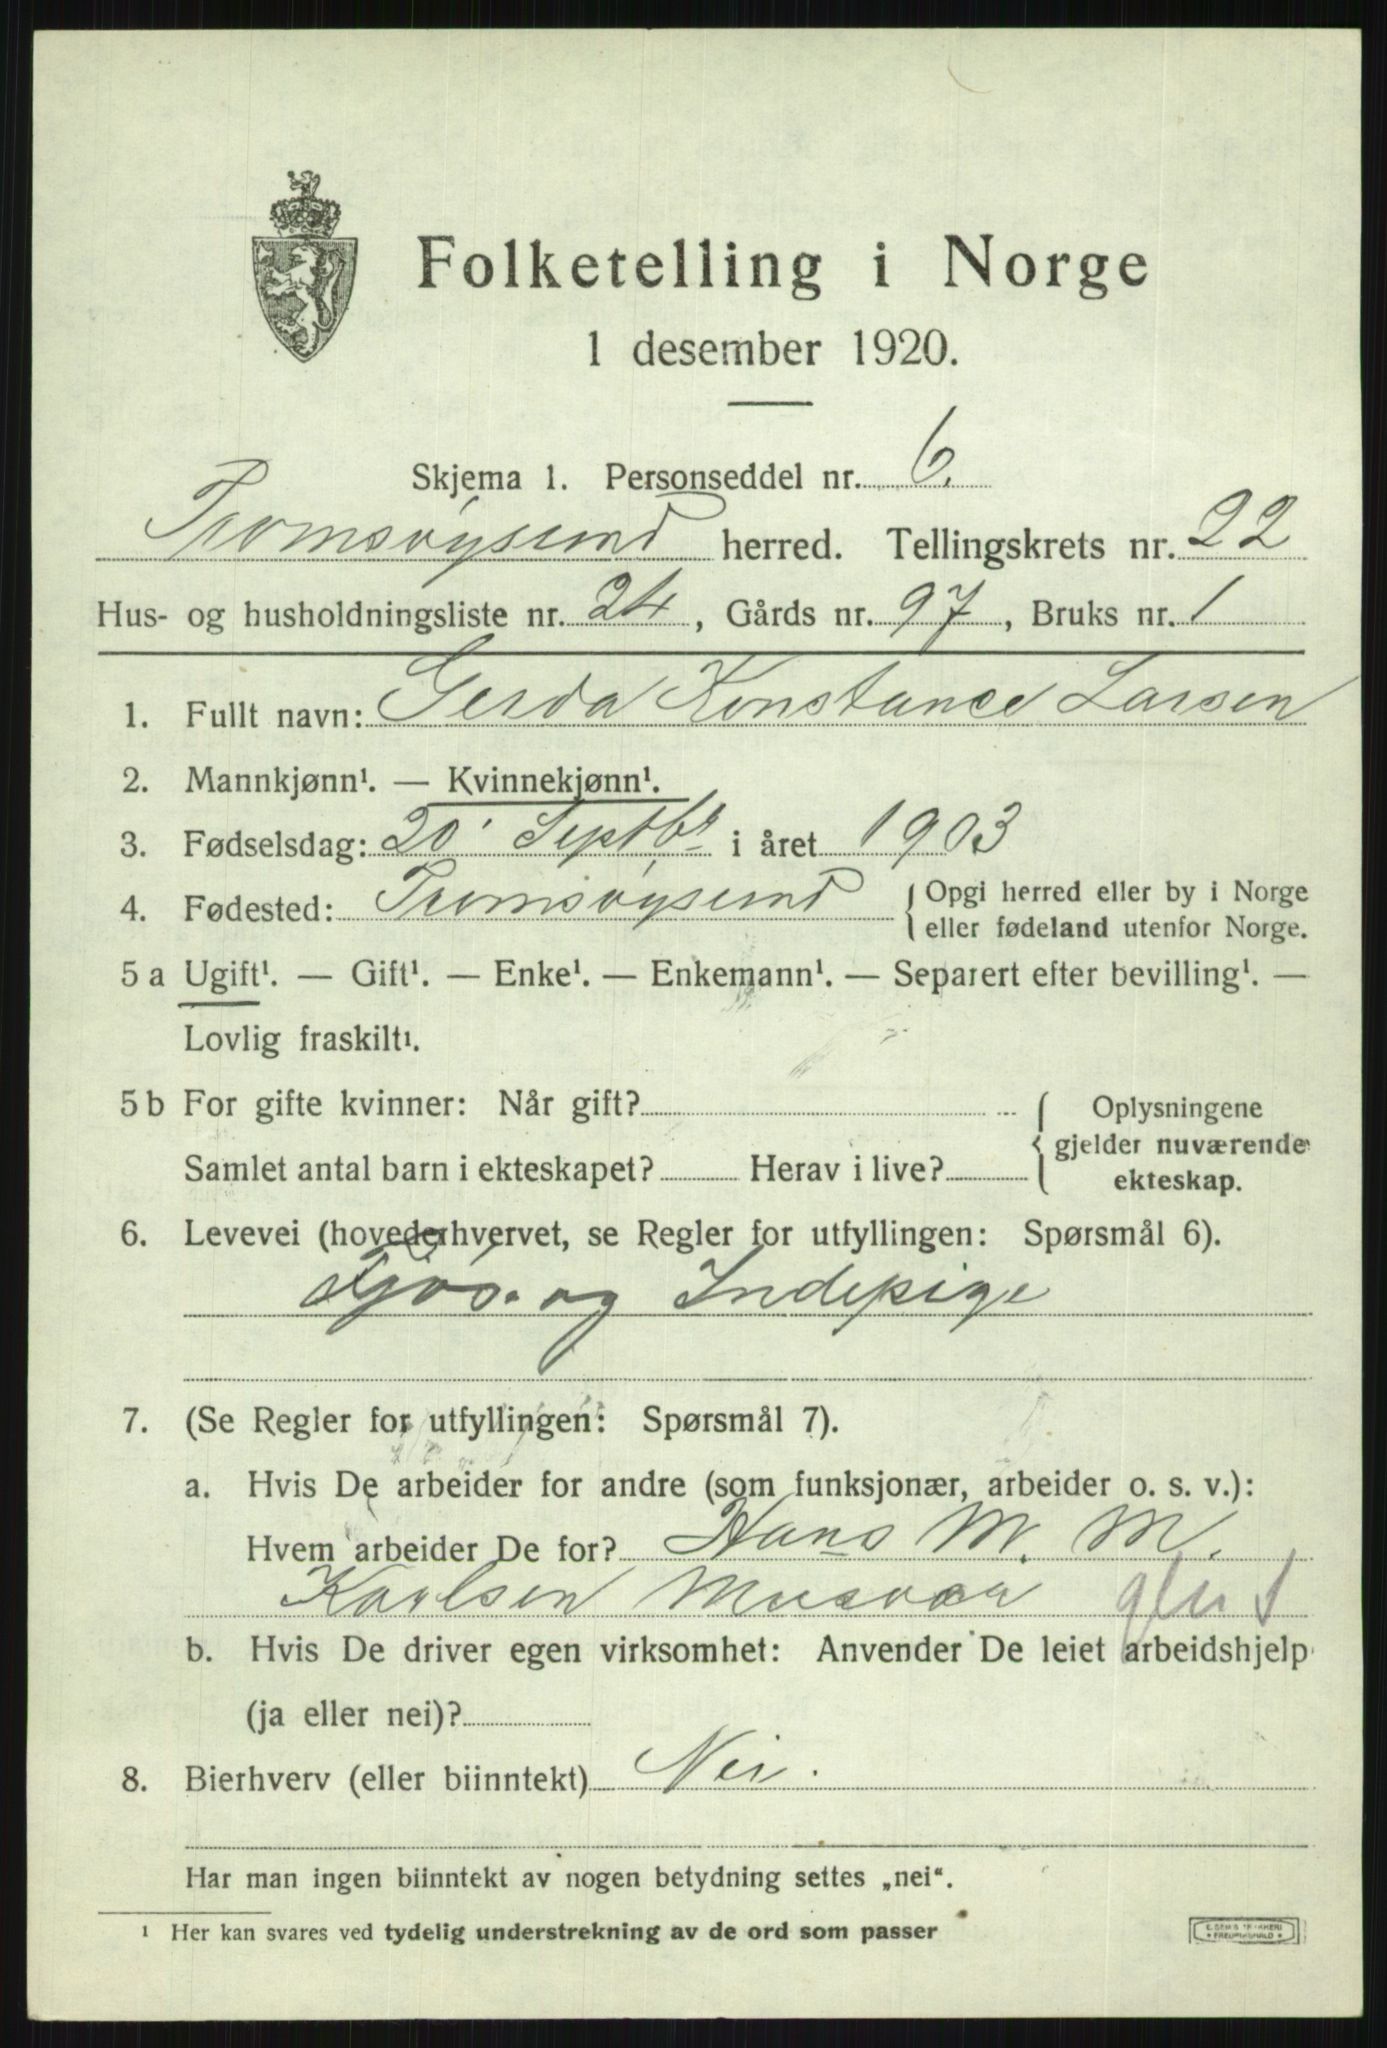 Folketelling i Norge
1 desember 1920.
Skjema 1. Personseddel nr. 6.
Tromsøysund herred. Tellingskrets nr. 22
Hus- og husholdningsliste nr. 24, Gårds nr. 97, Bruks nr. 1
1. Fullt navn: Gerda Konstance Larsen
2. Mannkjønn¹. — Kvinnekjønn¹.
3. Fødselsdag: 20 Septbr i året 1903
4. Fødested: Tromsøysund { Opgi herred eller by i Norge
eller fødeland utenfor Norge.
5 a Ugift¹. — Gift¹. — Enke¹. — Enkemann¹. — Separert efter bevilling¹. —
Lovlig fraskilt¹.
5 b For gifte kvinner: Når gift? { Oplysningene
gjelder nuværende
Samlet antal barn i ekteskapet? Herav i live? ekteskap.
6. Levevei (hovederhvervet, se Regler for utfyllingen: Spørsmål 6).
Fjøs. og Indepige
7. (Se Regler for utfyllingen: Spørsmål 7).
a. Hvis De arbeider for andre (som funksjonær, arbeider o. s. v.):
Hvem arbeider De for? Hans M. M.
Karlsen Musvær
b. Hvis De driver egen virksomhet: Anvender De leiet arbeidshjelp
(ja eller nei)?
8. Bierhverv (eller biinntekt) Nei.
Har man ingen biinntekt av nogen betydning settes „nei“.
¹ Her kan svares ved tydelig understrekning av de ord som passer